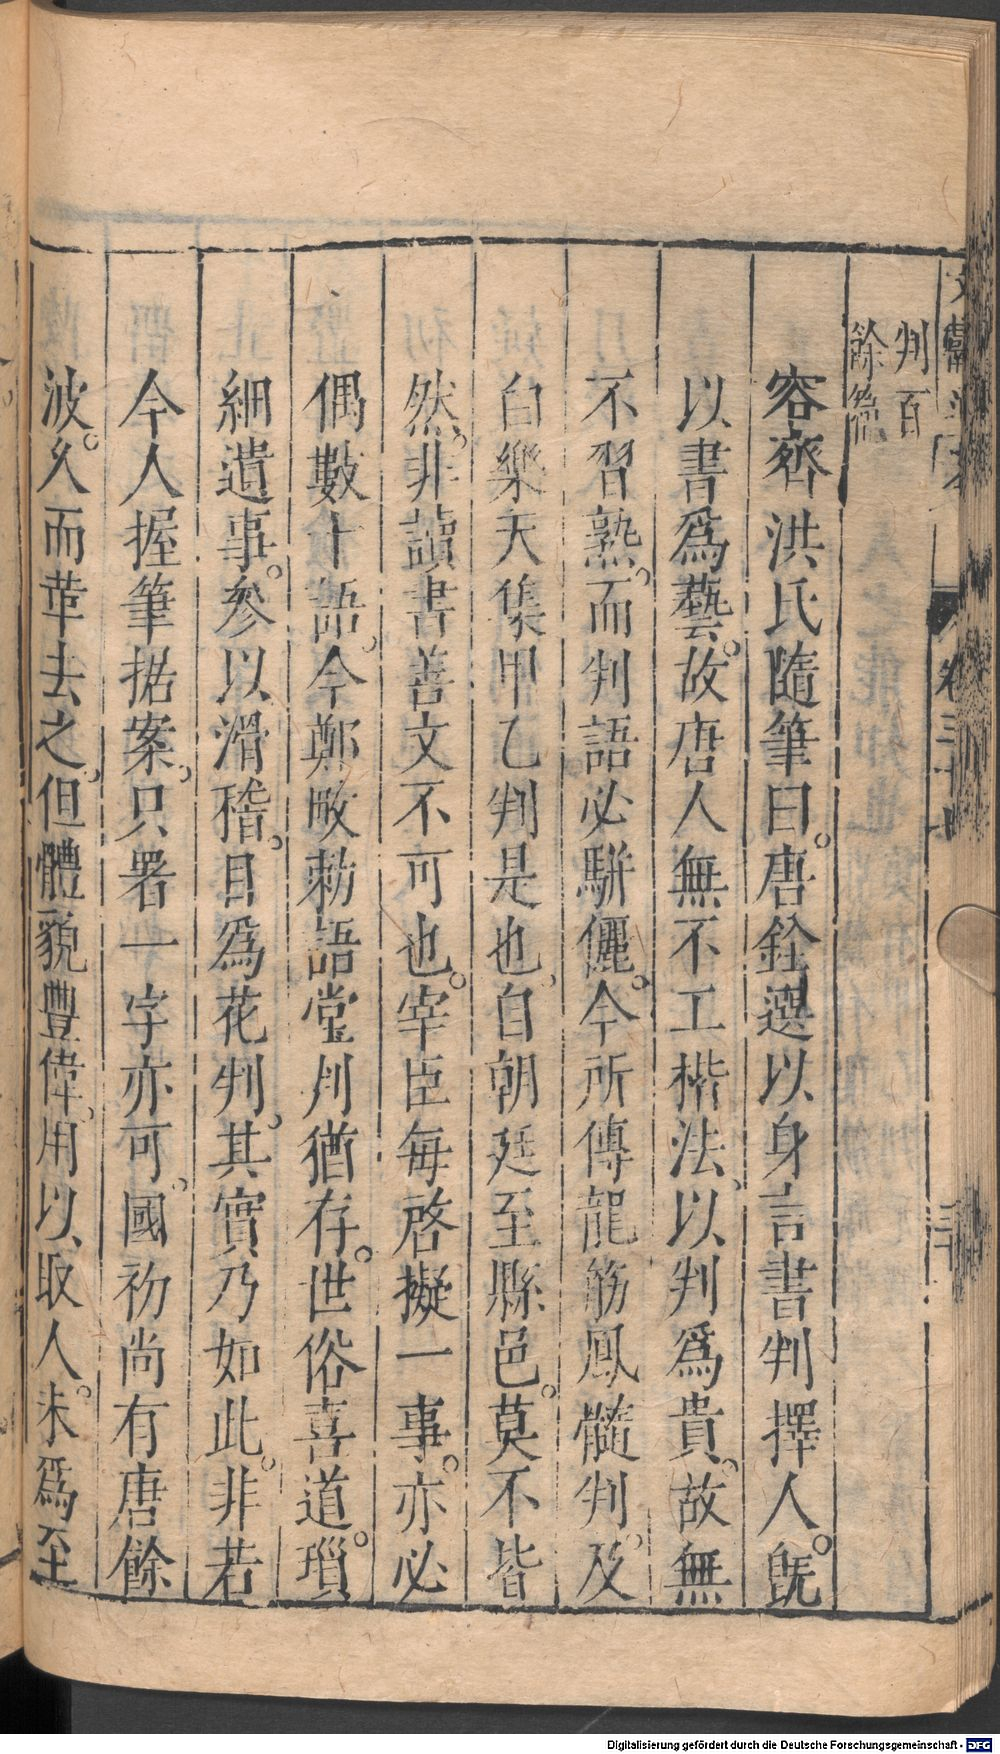 判百
餘篇
容齊洪氏隨筆曰。唐銓選以身言書判擇人。旣
以書爲藝。故唐人無不工楷法、以判爲貴。故無
不習熟。而判語必駢儷。今所傳龍筋鳳髓判。及
白樂天集甲乙判是也、自朝廷至縣邑。莫不皆
然。非讀書善文不可也。宰臣每啓擬一事。亦必
偶數十語。今鄭畋勅語堂判猶存。世俗喜道。瑣
細遺事。參以滑稽。目爲花判。其實乃如此。非若
今人握筆据案。只署一字亦可。國初尚有唐餘
波。久而革去之。但體貌豐偉。用以取人。未爲至
卷三十
Digitalisierung gefördert durch die Deutsche Forschungsgemeinschaft - DFG